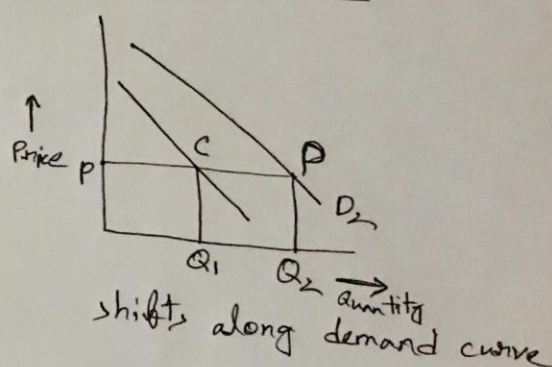 Price
P
C
D
D2
Q1
Q2
Quantity
shifts along demand curve